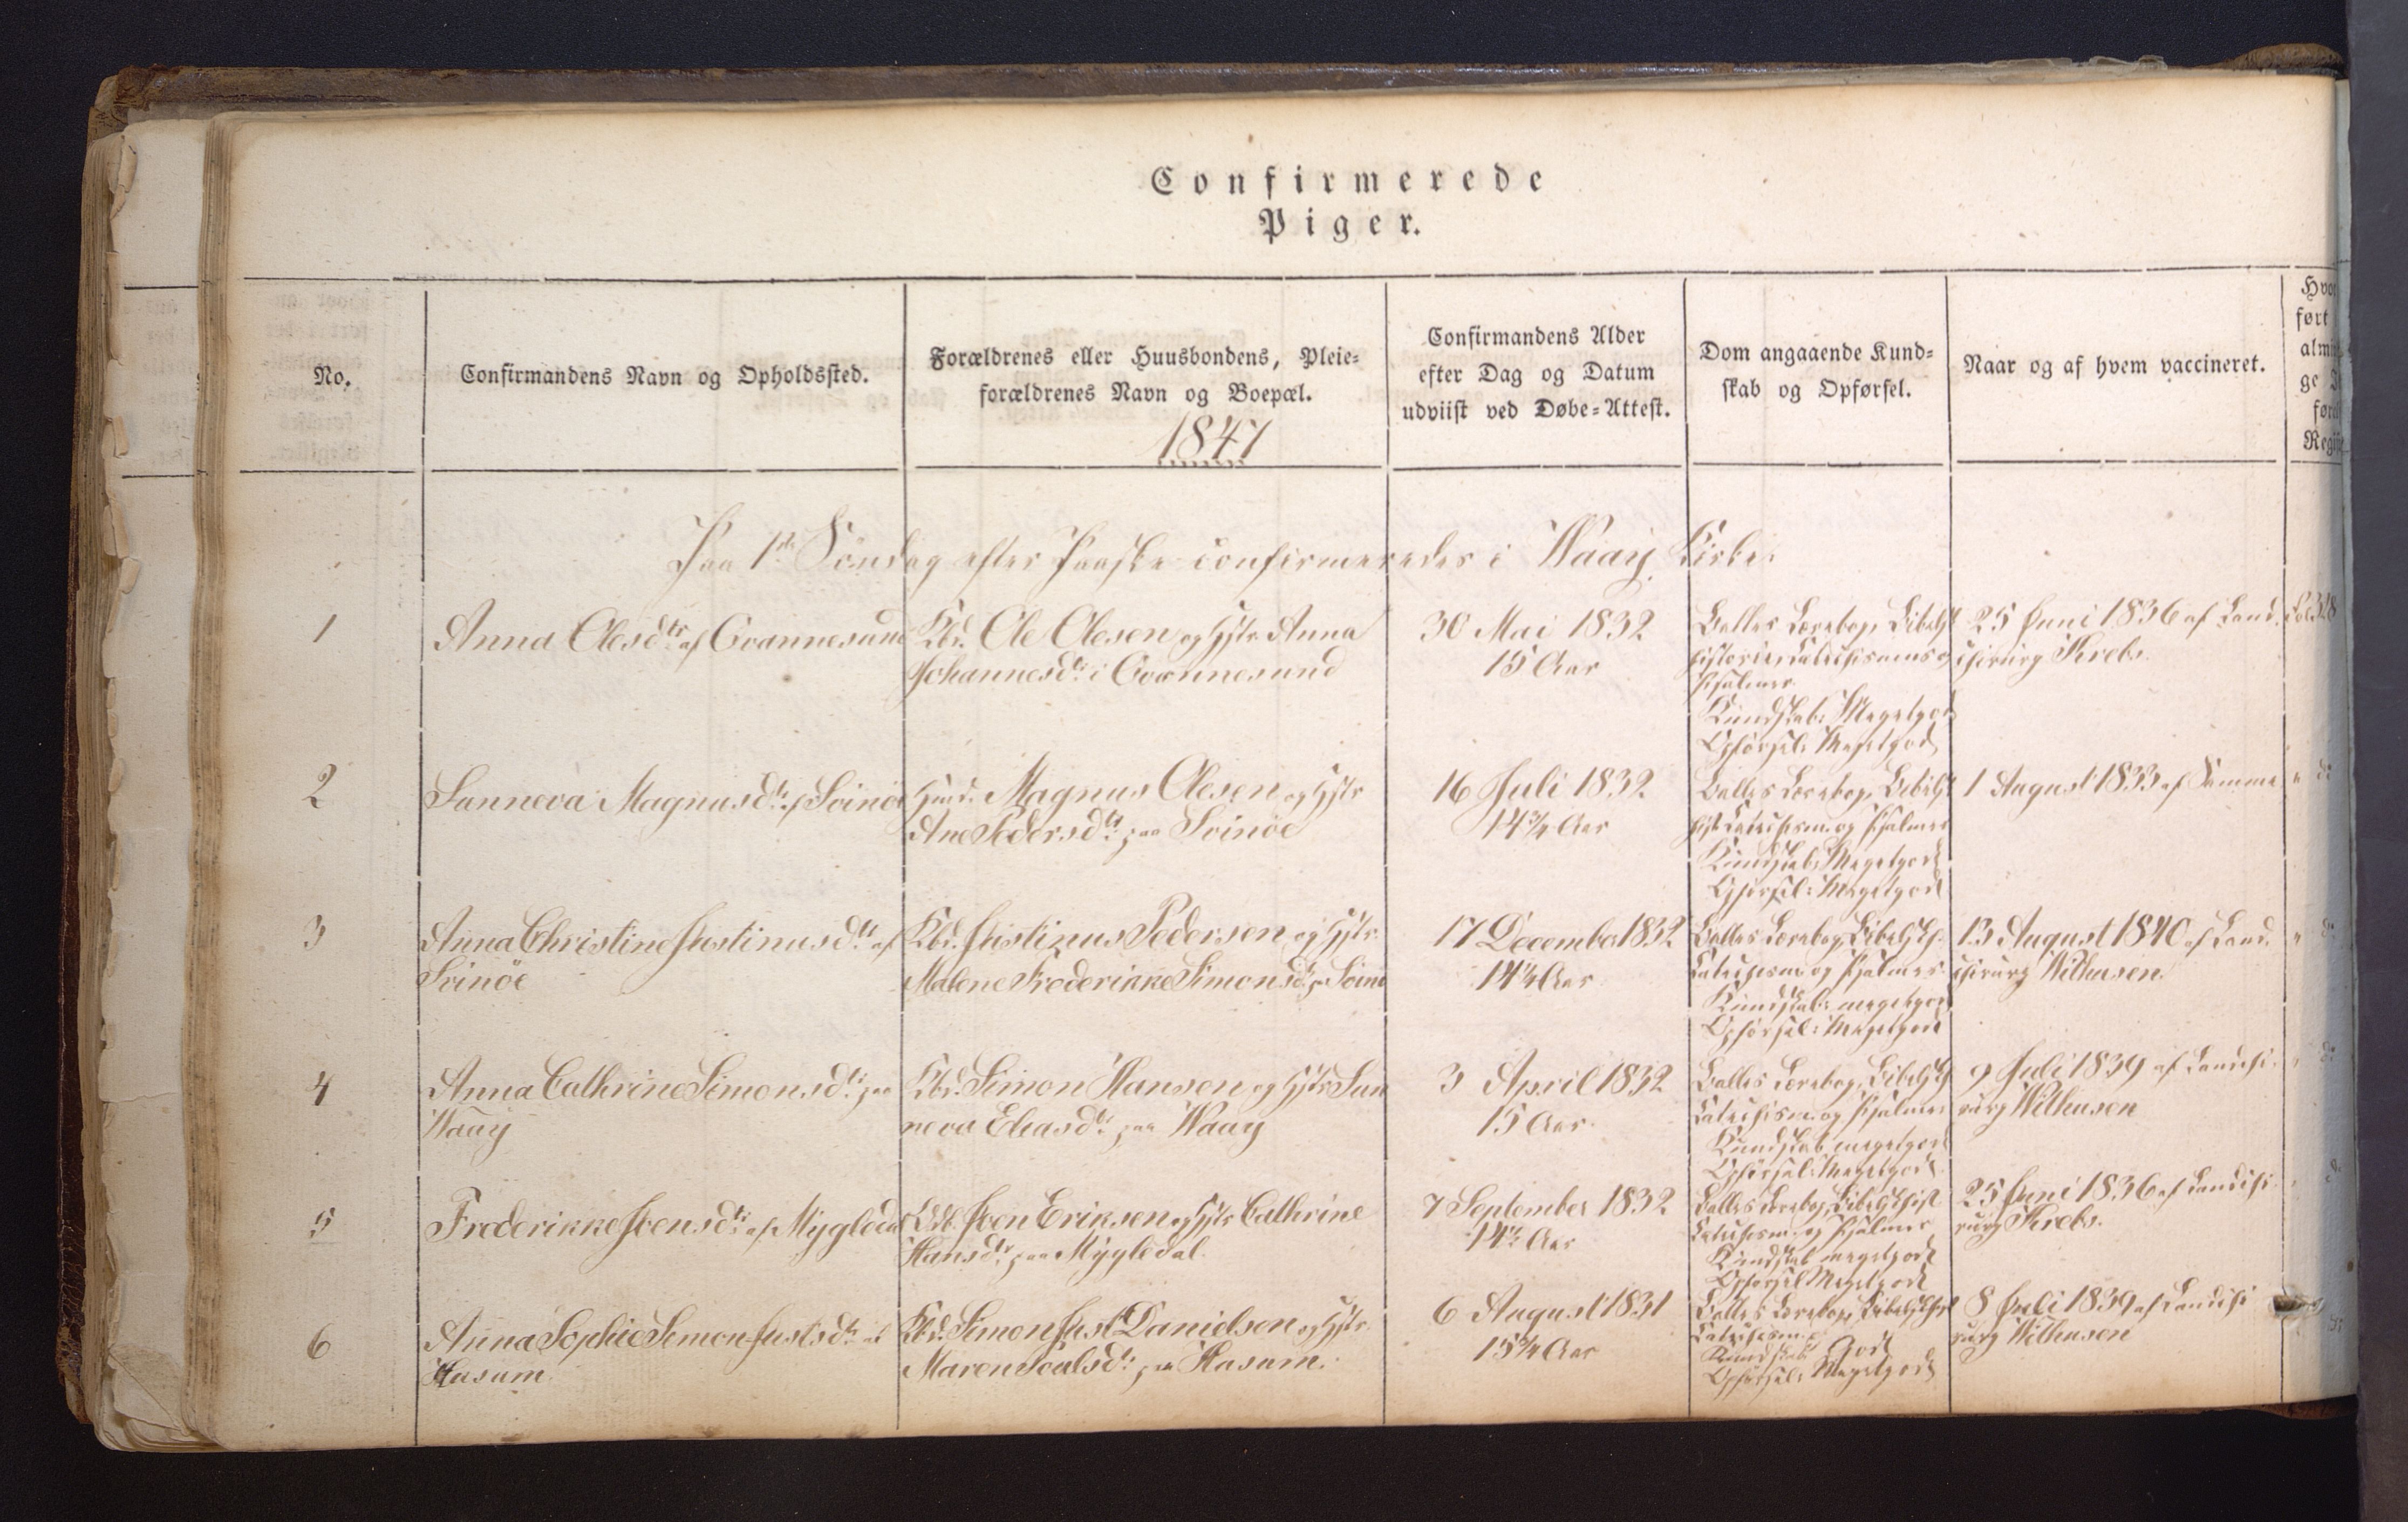 Confirmerede
Piger.
No.
Confirmandens Navn og Opholdssted.
Forældrenes eller Huusbondens, Pleie=
forældrenes Navn og Boepæl.
1847
Confirmandens Alder
efter Dag og Datum
udviist ved Døbe=Attest.
Dom angaaende Kund=
skab og Opførsel.
Naar og af hvem vaccineret.
Paa 1ste Söndag efter Paaske confirmeredes i Waag Kirke:
1
Anna Olesdtr af Qvannesund
Kbd. Ole Olesen og Hstr Anna
Johannesdtr i Qvannesund
30 Mai 1832
15 Aar
Balles Lærebog, Bibelsk
historie, Catechismus og
Psalmer.
Kundskab: Megetgod
Opförsel: Megetgod
25 Juni 1836 af Land.
chirurg Krebs.
Fol 328
2
Sanneva Magnusdtr af Svinöe
Magnus Olesen og Hstr
Ane Pedersdtr paa Svinöe
16 Juli 1832
14¾ Aar
Balles Lærebog, Bibelsk
hist. Catechism. og Psalmer
Kundskab: Megetgod
Opförsel: Megetgod
1 August 1833 af Samme
" do
3
Anna Christine Justinusdtr af
Svinöe
Kbd. Justinus Pedersen og Hstr.
Malene Frederikke Simonsdtr
17 December 1832
14¼ Aar
Balles Lærebog, Bibelsk h.
Catechism. og Psalmer.
Kundskab: megetgod
Opförsel: Megetgod
13 August 1840 af Land.
chirurg Wilhusen.
4
Anna Cathrine Simonsdtr paa
Waag
Kbd. Simon Hansen og Hstr San
neva Eliasdtr paa Waag
3 April 1832
15 Aar.
Balles Lærebog, Bibelsk h
Catechism. og Psalmer
Kundskab megetgod
Opförsel: Megetgod.
9 Juli 1839 af Landchi.
rurg Wilhusen
5
Frederikke Joensdtr af Mygledal
Joen Eriksen og Hstr Cathrine
Hansdtr paa Mygledal.
7 September 1832
14½ Aar
Balles Lærebog, Bibelsk hist
Catechism. og Psalmer
Kundskab megetgod
Opförsel Megetgod
25 Juni 1836 af Landchi.
rurg Krebs.
6
Anna Sophie Simon-Justsdtr af
Husum.
Kbd. Simon Just Danielsen og Hstr.
Maren Poulsdtr paa Husum.
6 August 1831
15¾ Aar
Balles Lærebog, Bibelsk hist
Catechism.
Kundskab God
Opförsel: Megetgod
8 Juli 1839 af Landchi
rurg Wilhusen